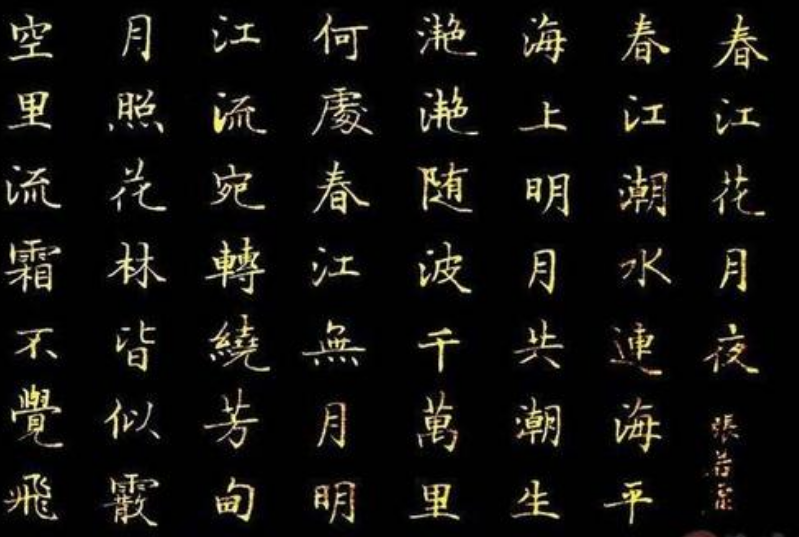 春江花月夜
張若虛
春江潮水連海平
海上明月共潮生
灔灔随波千萬里
何處春江無月明
江流宛轉繞芳甸
月照花林皆似霰
空里流霜不覺飛